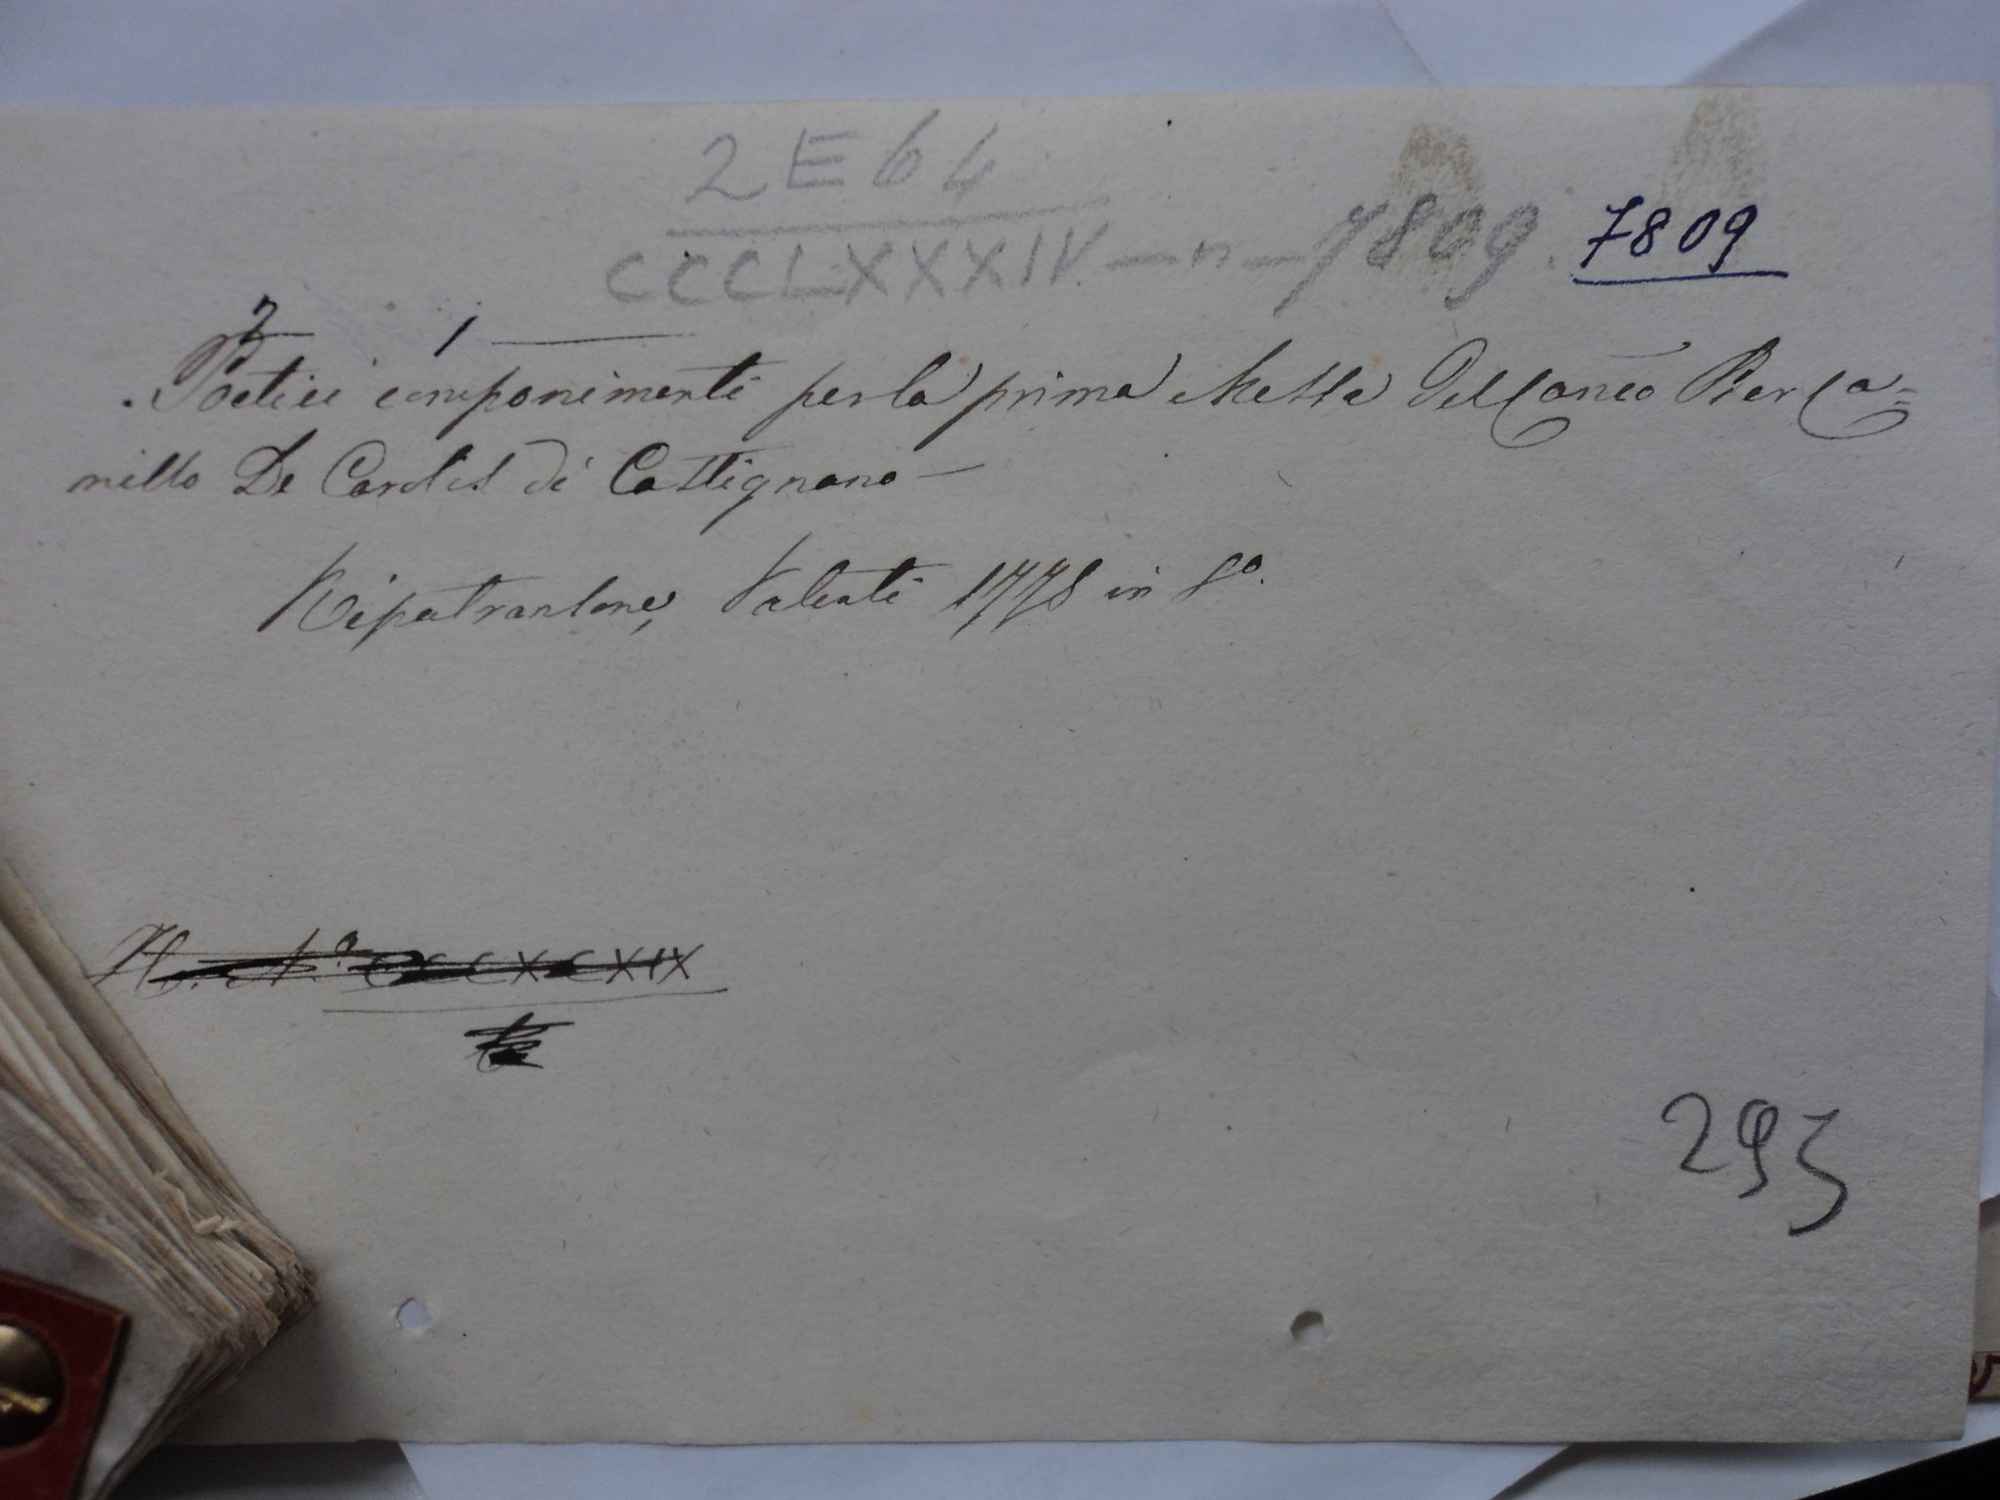 2 E 6 4
CCCLXXXIV — n — 7809. 7809
2 1 —
Poetici componimenti per la prima Messa del Canco Pier Ca=
millo De Carolis di Castignano —
Ripatransone, Valenti 1778 in 8º.
N.º CCCXCXIX
293